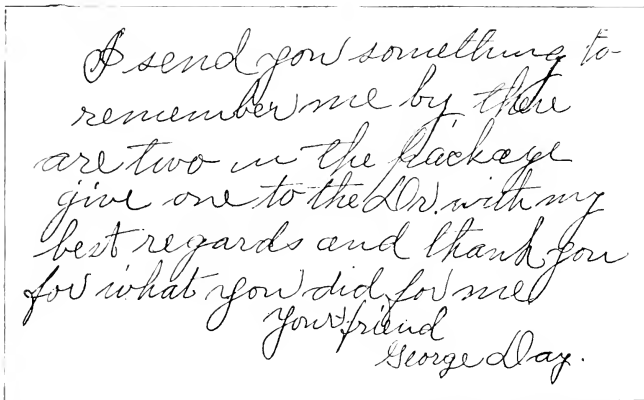 I send you something to
remember me by there
are two in the package
give one to the Dr. with my
best regards and thank you
for what you did for me
Your friend
George Day.